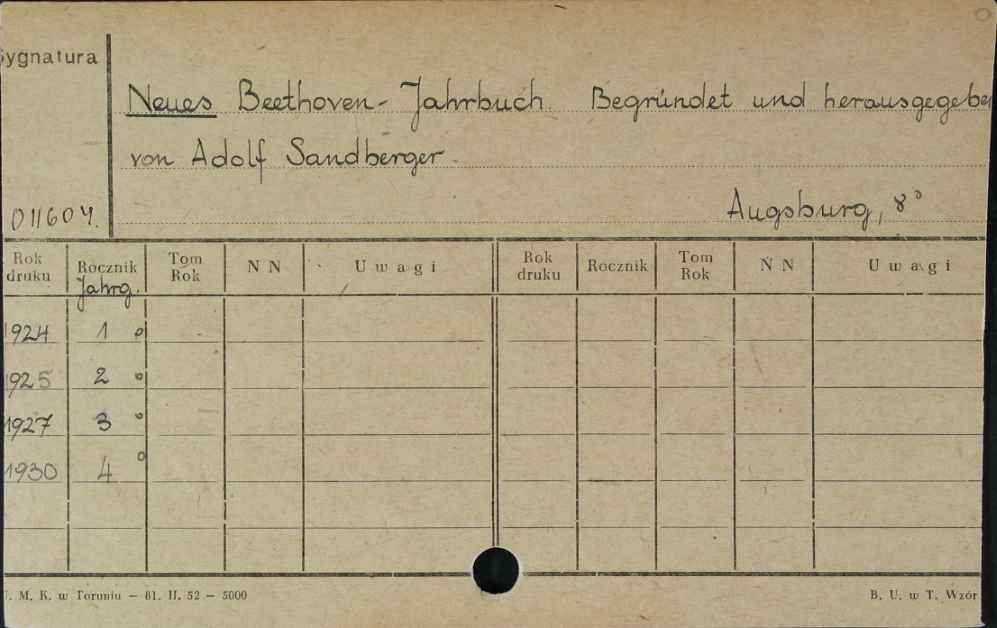 ygnatura
Neues Beethoven-Jahrbuch. Begründet und herausgegebe
von Adolf Sandberger.
Augsburg, 8°
011604.
Rok druku Rocznik Tom Rok N N Uwagi Rok druku Rocznik Tom Rok N N Uwagi
Jahrg.
1924 1
1925 2
1927 3
1930 4
. M. K. w Toruniu — 81. II. 52 — 5000 B. U. w T. Wzór